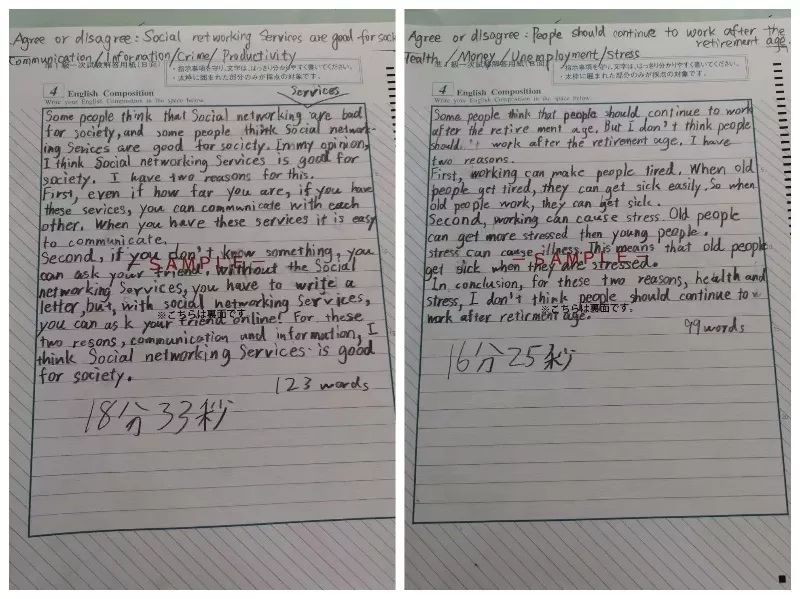 Agree or disagree: Social networking Services are good for soci
Communication/Information/Crime/Productivity
準1級一次試験解答用紙(B面)
・指示事項を守り、文字は、はっきり分かりやすく書いてください。
・太枠に囲まれた部分のみが採点の対象です。
4 English Composition
Write your English Composition in the space below.
Services
Some people think that Social networking are bad
for society, and some people think Social network-
ing Services are good for society. In my opinion,
I think Social networking Services is good for
society. I have two reasons for this.
First, even if how far you are, if you have
these sevices, you can communicate with each
other. When you have these services it is easy
to communicate.
Second, if you don't know something, you
can ask your friend. Without the Social
networking Services, you have to write a
letter, but, with social networking Services,
you can ask your friend online! For these
two resons, communication and information, I
think Social networking Services is good
for society.
SAMPLE
※こちらは裏面です。
123 words
18分33秒
Agree or disagree: People should continue to work after the
retirement age.
Health/Money/Unemployment/stress
準1級一次試験解答用紙(B面)
・指示事項を守り、文字は、はっきり分かりやすく書いてください。
・太枠に囲まれた部分のみが採点の対象です。
4 English Composition
Write your English Composition in the space below.
Some people think that people should continue to work
after the retire ment age. But I don't think people
should work after the retirement age. I have
two reasons.
First, working can make people tired. When old
people get tired, they can get sick easily. So when
old people work, they can get sick.
Second, working can cause stress. Old people
can get more stressed then young people.
stress can cause illness. This means that old people
get sick when they are stressed.
In conclusion, for these two reasons, health and
stress, I don't think people should continue to
work after retirment age.
SAMPLE
※こちらは裏面です。
99 words
16分25秒